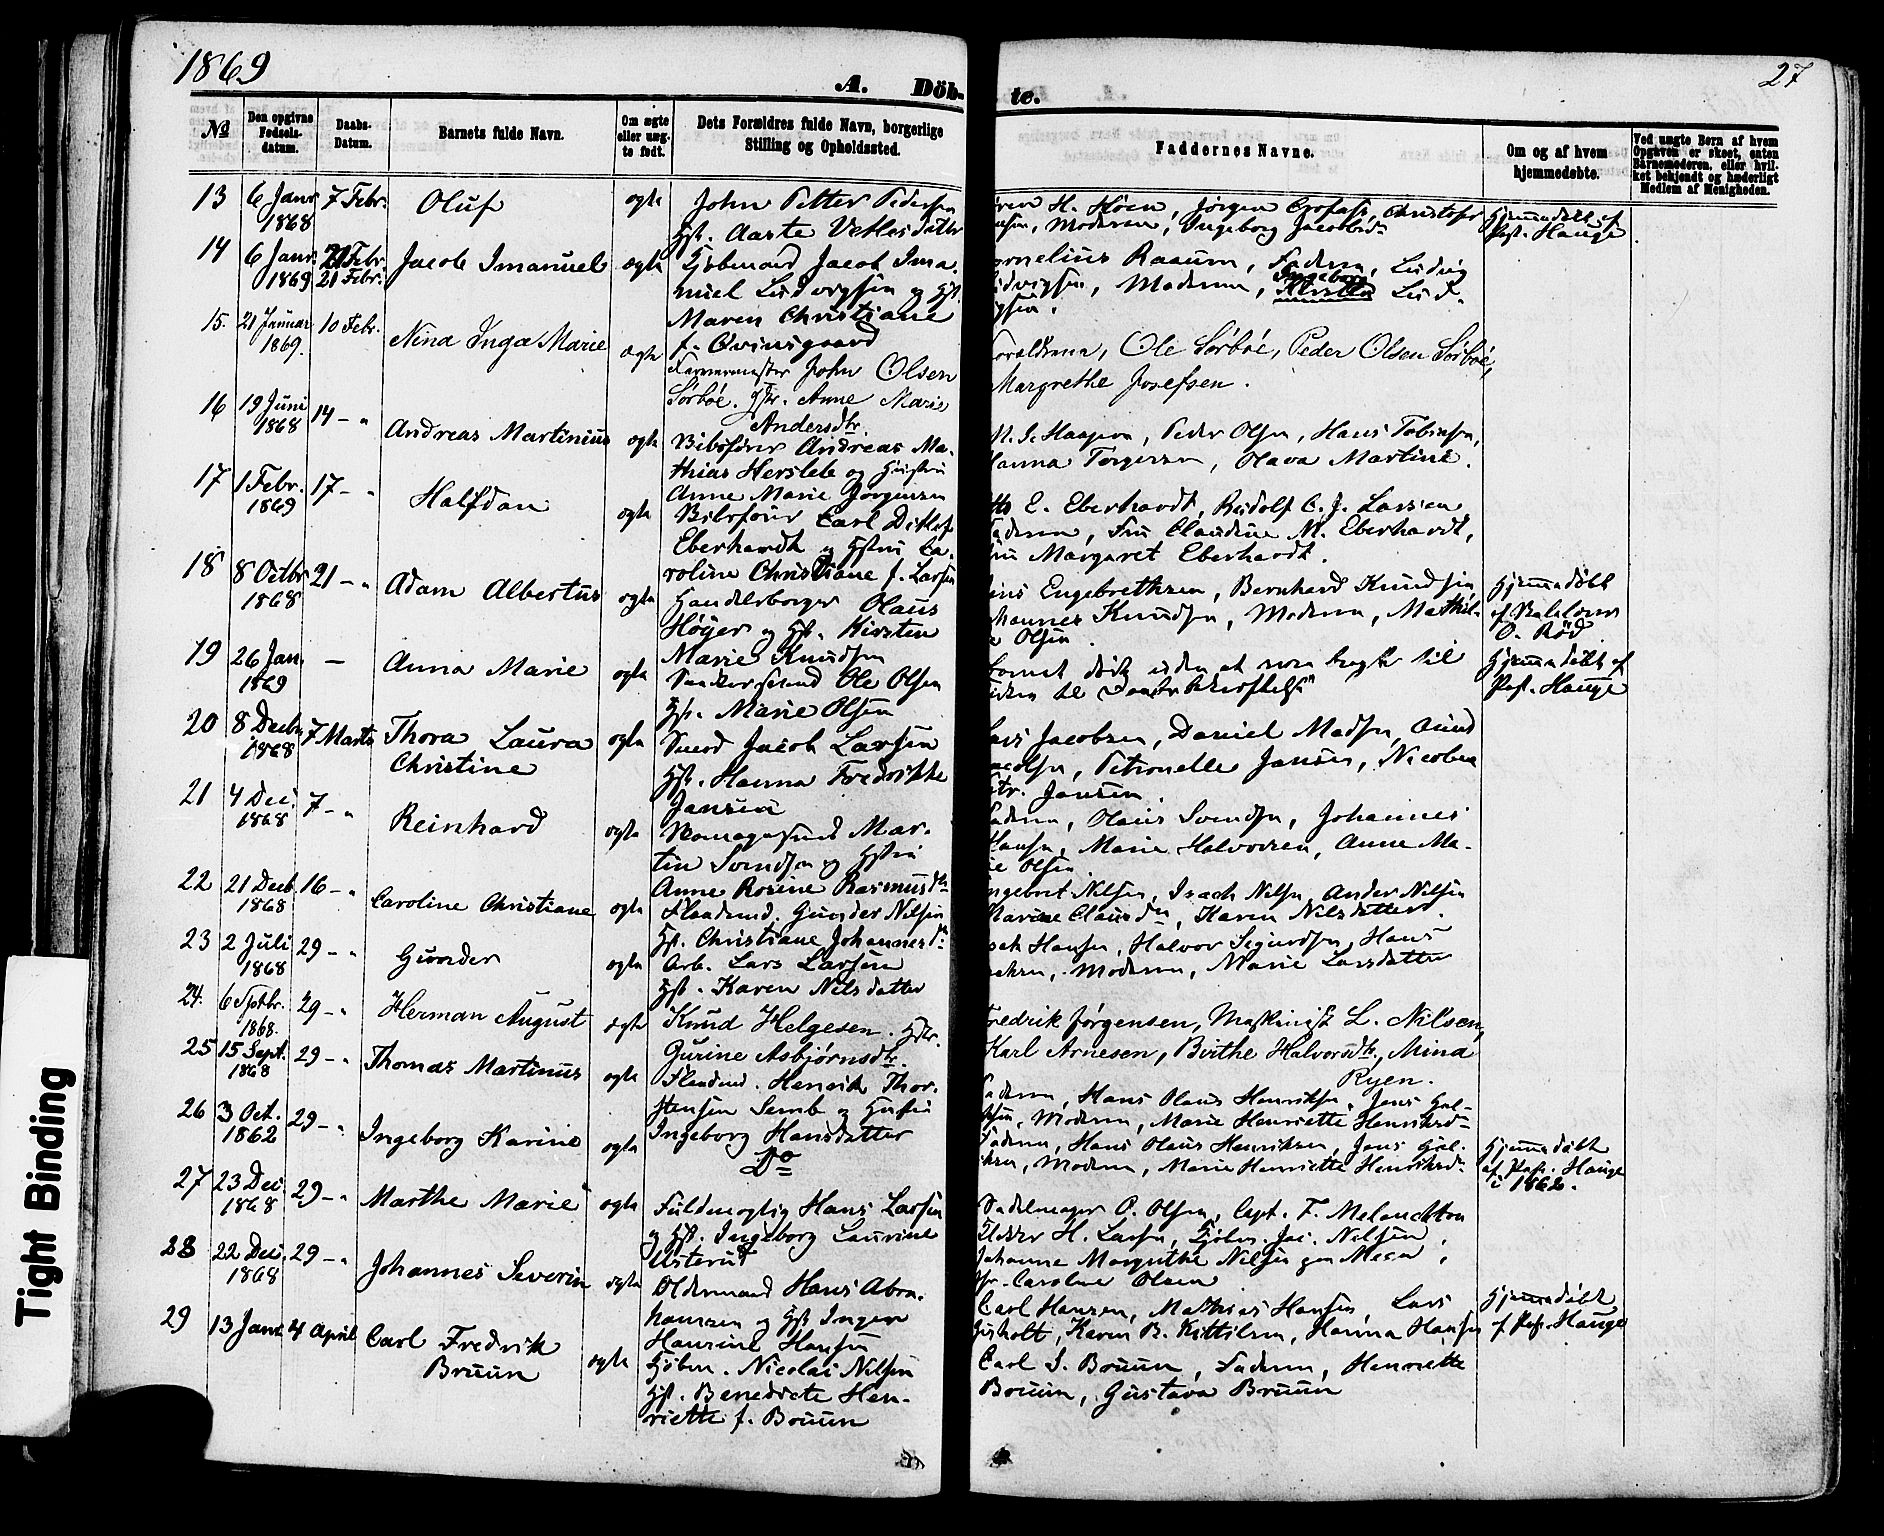 1869
27
A. Döb-
te.
No.
Den opgivne Fødsels-datum.
Daabs-Datum.
Barnets fulde Navn.
Om ægte eller uæg-te født.
Dets Forældres fulde Navn, borgerlige Stilling og Opholdssted.
Faddernes Navne.
Om og af hvem hjemmedøbte.
Ved uægte Børn af hvem Opgaven er skeet, enten Barnemoderen, eller hvil-ket bekjendt og hæderligt Medlem af Menigheden.
13 6 Janr 1868 7 Febr. Oluf ægte
John Petter Pedersen
Hst. Aaste Vetlesdatter
H. Höen, Jörgen Christofer
Moderen, Ingeborg Jacobsdr
Hjemmedöbt af Past. Hauge.
14 6 Janr. 1869 21 Febr. 21 Febr. Jacob Imanuel ægte
Gjörtmand Jacob Ima-
nuel Ludvigsen og Hst.
Maren Christiane
f. Qvinsgaard
rnelius Raaum, Faderen, Ludvig
dvigsen, Moderen, Ingeborg Lud-
gsen.
15. 21 Januar 1869. 10 Febr. Nina Inga Marie ægte
Farvermester John Olsen
Sørbøe. Hstr. Anne Marie
Andersdtr.
oraldrene, Ole Sørbøe, Peder Olsen Sørbøe,
Margrethe Josefsen.
16 19 Juni 1868 14 - " Andreas Martinius ægte
Bödsfører Andreas Ma-
thias Hersleb og Hustru
Anne Marie Jörgensen
Peder Olsen, Hans Tobiasen,
Hanna Torgersen, Olava Martine.
17 1 Febr. 1869 17 - " Halfdan ægte
Carl Ditlef
Eberhardt og Hstru Ca-
roline Christiane f. Larsen
E. Eberhardt, Rudolf C. J. Larsen
Faderen, Fru Claudine M. Eberhardt,
Fru Margaret Eberhardt.
18 8 Octbr 1868 21 - " Adam Albertus ægte
Handelsborger Olaus
Höyer og Hst. Kirsten
Marie Knudsen
ins Engebrethsen, Bernhard Knudsen
hannes Knudsen, Moderen, Mathil-
e Olsen.
Hjemmedöbt af O. Röd.
19 26 Jan. 1869 — Anna Marie ægte
Ole Olsen
Hst. Marie Olsen
Hjemmedöbt af Past. Hauge
20 8 Decbr. 1868 7 Marts Thora Laura Christine ægte
Smed Jacob Larsen
Hst. Hanna Fredrikke
Jansen
Jacobsen, Daniel Madsen,
Petronelle Jansen, Nicoline
Jansen.
21 4 Dec. 1868 7 - " Reinhard ægte
Mar-
tin Svendsen og Hstru
Anne Rosine Rasmusdtr
aderen, Olaus Svendsen, Johannes
Hansen, Marie Halvorsen, Anne Ma-
ie Olsen
22 21 Decb. 1868 16 - " Caroline Christiane ægte
Gunder Nilsen
Hst. Christiane Johannesdr
ngebret Nilsen, Isach Nilsen, Ander Nilsen
Karen Nilsdatter.
23 2 Juli 1868 29 - " Gunder ægte
Arb. Lars Larsen
Hst. Karen Nilsdatter
sak Hansen, Halvor Sigurdsen, Hans
Moderen, Marie Larsdatter
24. 6 Septbr. 1868. 29 - " Herman August ægte
Knud Helgesen. Hstr.
Gurine Asbjørnsdtr.
Fredrik Jørgensen, Maskinist L. Nilsen,
Karl Arnesen, Birthe Halvorsdtr., Mina
Ryen.
25 15 Sept. 1868 29 - " Thomas Martinus ægte
Henrik Thor-
stensen Semb og Hustru
Ingeborg Hansdatter
Faderen, Hans Olaus Henriksen, Jens
Moderen, Marie Henriette Henriksd-
26 3 Oct. 1862 29 - " Ingeborg Karine ægte
Do
Faderen, Hans Olaus Henriksen, Jens
Moderen, Marie Henriette Henriksdr
Hjemmedöbt af Past. Hauge i 1862.
27 23 Dec. 1868 29 - " Marthe Marie ægte
Fuldmægtig Hans Larsen
og Hst. Ingeborg Laurine
Usterud
Sadelmager O. Olsen, Capt. F. Melanchton
H. Larsen, Nilsen,
Johanne Margrethe Nilsen
Caroline Olsen
28 22 Dec. 1868 29 - " Johannes Severin ægte
Oldermand Hans Abra-
hamsen og Hst Inger
Haurine Hansen
Carl Hansen, Mathias Hansen, Lars
Karen B. Kittilsen, Hanna Hansen
Hjemmedöbt af Past. Hauge
29 13 Janr. 4 April Carl Fredrik Bruun ægte
Nicolai Nilsen
Hst. Benedicte Hen-
riette f. Bruun
Carl I. Bruun, Faderen, Henriette
Bruun, Gustava Bruun
Tight Binding